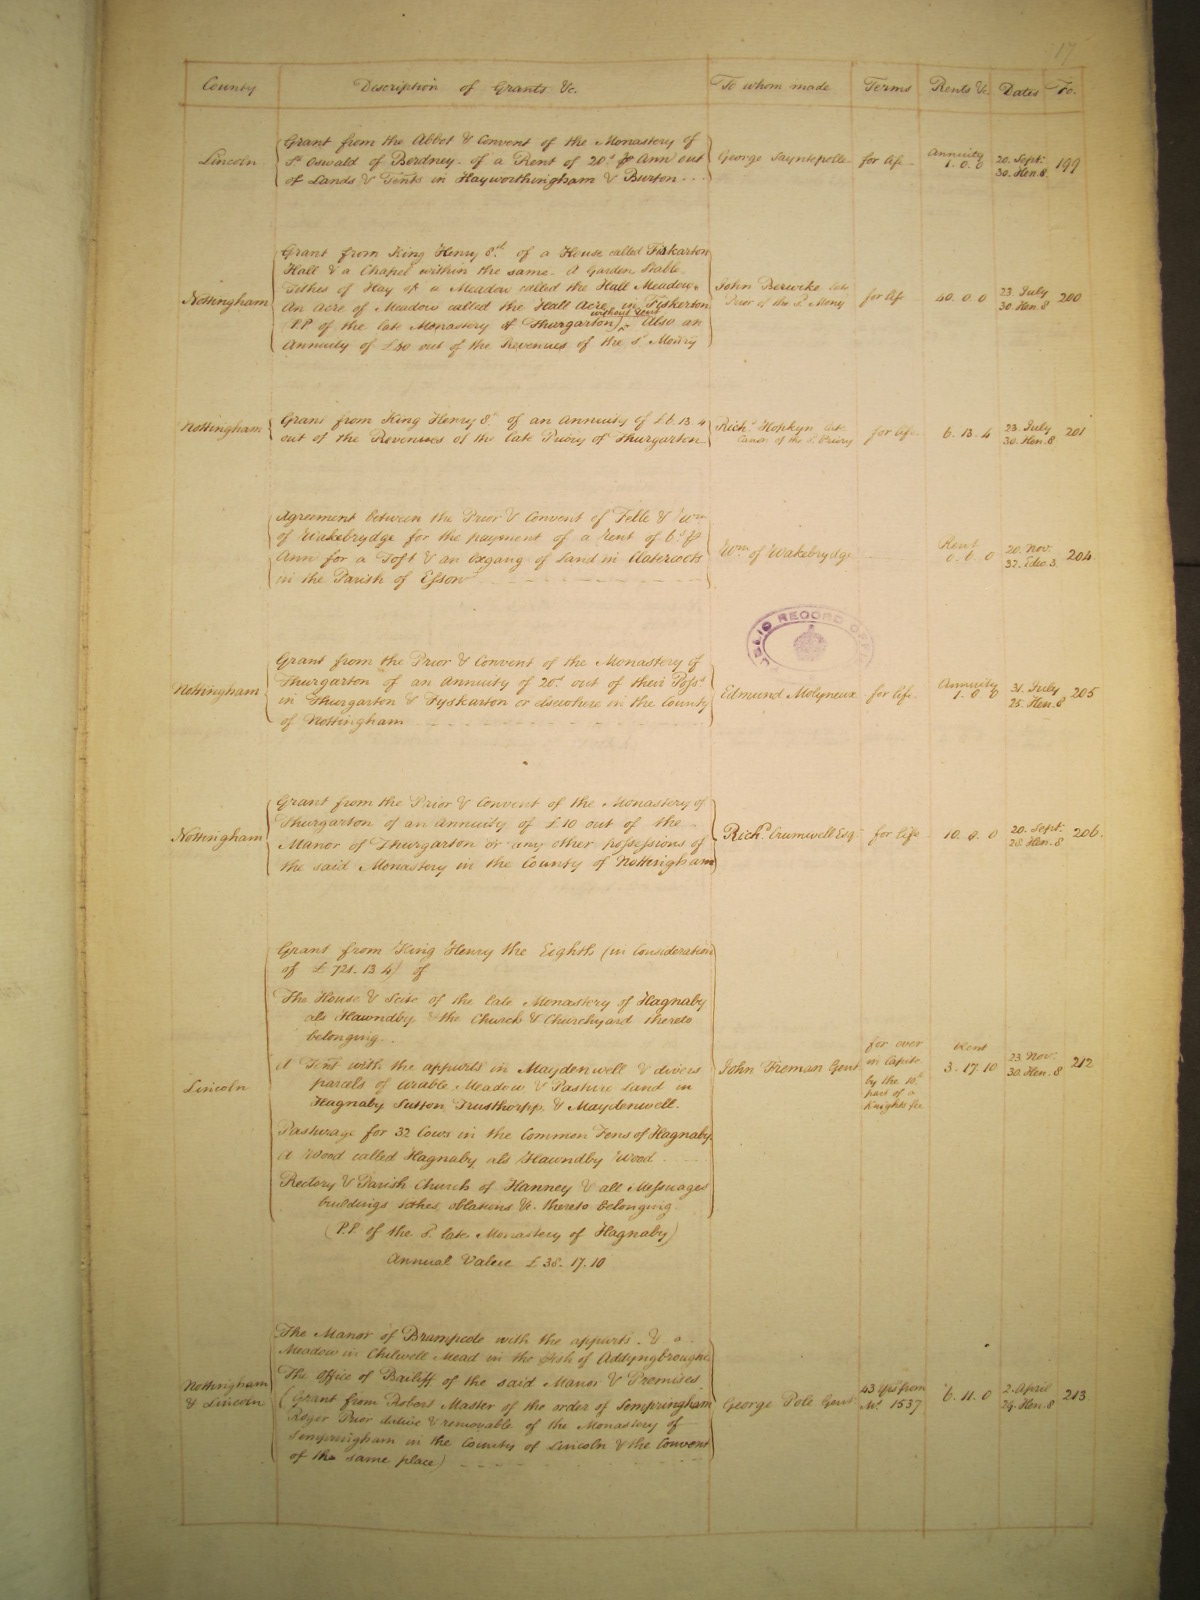 17
County Description of Grants &c. To whom made Terms Rents &c. Dates Fo.
Lincoln
Grant from the Abbot & Convent of the Monastery of
St. Oswald of Berdney - of a Rent of 20s. p Ann out
of Lands & Tents in Hayworthingham & Burton - - -
George Sayntepolle
for life
Annuity
1. 0. 0
20. Sept.
30. Hen. 8.
199
Nottingham
Grant from King Henry 8th. of a House called Fiskarton
Hall & a Chapel within the same - A Garden, Stable,
Tithes of Hay of a Meadow called the Hall Meadow,
An Acre of Meadow called the Hall Acre in Fiskerton
without rent
(P.P of the late Monastery of Thurgarton) ^ Also an
Annuity of £40 out of the Revenues of the sd. Monry
John Berwicke late
Prior of the sd. Monry
for life
40. 0. 0
23. July
30. Hen. 8
200
Nottingham
Grant from King Henry 8th. of an Annuity of £6. 13. 4
out of the Revenues of the late Priory of Thurgarton
Richd. Hopkyn late
Canon of the sd. Priory
for life
6. 13. 4
23. July
30. Hen. 8
201
Agreement between the Prior & Convent of Felle & Wm
of Wakebrydge for the payment of a Rent of 6d. p
Ann for a Toft & an Oxgang of Land in
in the Parish of
Wm. of Wakebrydge
Rent
0. 0. 6
20. Nov.
32. Edw. 3.
204
PUBLIC RECORD OFFICE
Nottingham
Grant from the Prior & Convent of the Monastery of
Thurgarton of an Annuity of 20s. out of their Posss.
in Thurgarton & Fyskarton or elsewhere in the County
of Nottingham
Edmund Molyneux
for life
Annuity
1. 0. 0
31. July
25. Hen. 8
205
Nottingham
Grant from the Prior & Convent of the Monastery of
Thurgarton of an Annuity of £10 out of the
Manor of Thurgarton or any other possessions of
the said Monastery in the County of Nottingham
Richd. Crumwell Esq.
for life
10. 0. 0
20. Sept.
28. Hen. 8
206.
Lincoln
Grant from King Henry the Eighth (in Consideration
of £ 721. 13. 4) of
The House & Scite of the late Monastery of Hagnaby
als Hawndby & the Church & Churchyard thereto
belonging.
A Tent with the appurts in Maydenwell & divers
parcels of arable Meadow & Pasture land in
Hagnaby Sutton, Trusthorpp & Maydenwell.
Pasturage for 32 Cows in the Common Fens of Hagnaby
A Wood called Hagnaby als Hawndby Wood
Rectory & Parish Church of Hanney & all Messuages
buildings tithes, oblations &c. thereto belonging
(P.P. of the sd. late Monastery of Hagnaby)
Annual Value £ 38. 17. 10
John Freman Gent.
for ever
in Capite
by the 10th
part of a
Knights fee
Rent
3. 17. 10
23 Nov.
30. Hen. 8
212
Nottingham
& Lincoln
The Manor of Brampcote with the appurts. & a
Meadow in Chilwell Mead in the psh of Addyngbroughe
The Office of Bailiff of the said Manor & Premises
(Grant from Robert Master of the order of Sempringham
Roger Prior dative & removable of the Monastery of
Sempringham in the County of Lincoln & the Convent
of the same place)
George Pole Gent.
43 yrs from
Ms. 1537
6. 11. 0
2. April
24. Hen. 8
213